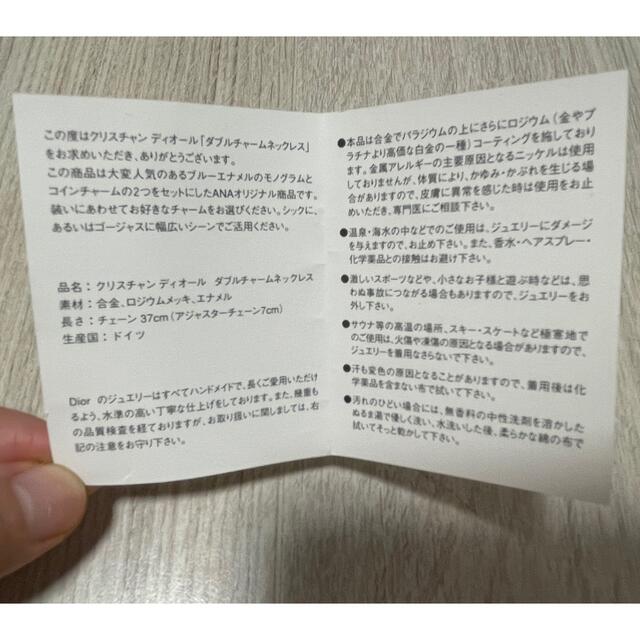 この度はクリスチャン ディオール「ダブルチャームネックレス」
をお求めいただき、ありがとうございます。
この商品は大変人気のあるブルーエナメルのモノグラムと
コインチャームの2つをセットにしたANAオリジナル商品です。
装いにあわせてお好きなチャームをお選びください。シックに、
あるいはゴージャスに幅広いシーンでご活用いただけます。
品名：クリスチャン ディオール ダブルチャームネックレス
素材：合金、ロジウムメッキ、エナメル
長さ：チェーン 37cm（アジャスターチェーン7cm）
生産国：ドイツ
Dior のジュエリーはすべてハンドメイドで、長くご愛用いただけ
るよう、水準の高い丁寧な仕上げをしております。また、幾重も
の品質検査を経ておりますが、お取り扱いに関しましては、右
記の注意をお守り下さい。
●本品は合金でパラジウムの上にさらにロジウム（金やプ
ラチナより高価な白金の一種）コーティングを施しており
ます。金属アレルギーの主要原因となるニッケルは使用
しておりませんが、体質により、かゆみ・かぶれを生じる場
合がありますので、皮膚に異常を感じた時は使用をお止
めいただき、専門医にご相談下さい。
●温泉・海水の中などでのご使用は、ジュエリーにダメージ
を与えますので、お止め下さい。また、香水・ヘアスプレー・
化学薬品との接触はお避け下さい。
●激しいスポーツなどや、小さなお子様と遊ぶ時などは、思
わぬ事故につながる場合もありますので、ジュエリーをお
外し下さい。
●サウナ等の高温の場所、スキー・スケートなど極寒地で
のご使用は、火傷や凍傷の原因となる場合がありますので、
ジュエリーを着用なさらないで下さい。
●汗も変色の原因となることがありますので、着用後は化
学薬品を含まない布で拭いて下さい。
●汚れのひどい場合には、無香料の中性洗剤を溶かした
ぬるま湯で優しく洗い、水洗いした後、柔らかな綿の布で
拭いてそっと乾かして下さい。